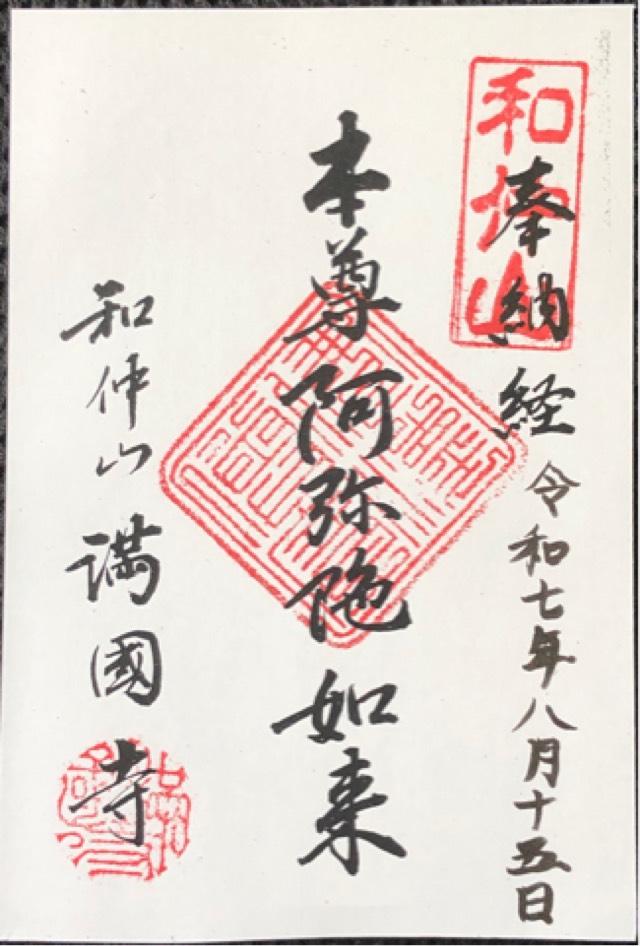 奉納経
令和七年八月十五日
本尊阿弥陀如来
和仲山
満國寺